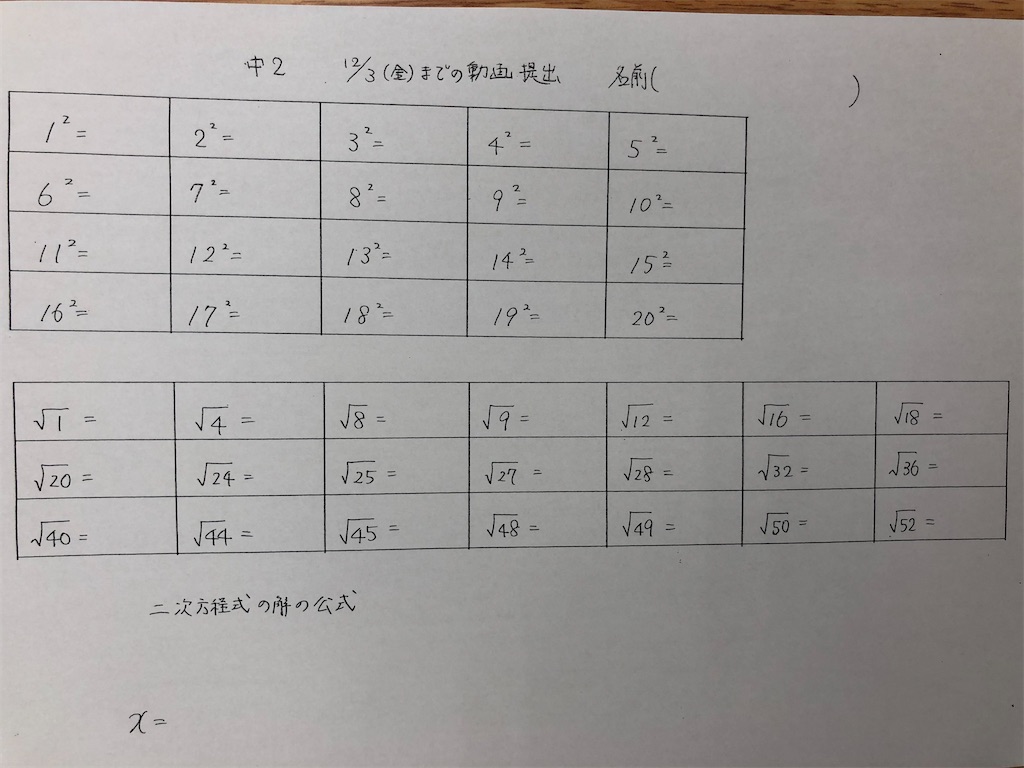 中2 12/3(金)までの動画提出 名前( )
1²= 2²= 3²= 4²= 5²=
6²= 7²= 8²= 9²= 10²=
11²= 12²= 13²= 14²= 15²=
16²= 17²= 18²= 19²= 20²=
√1= √4= √8= √9= √12= √16= √18=
√20= √24= √25= √27= √28= √32= √36=
√40= √44= √45= √48= √49= √50= √52=
二次方程式の解の公式
x=